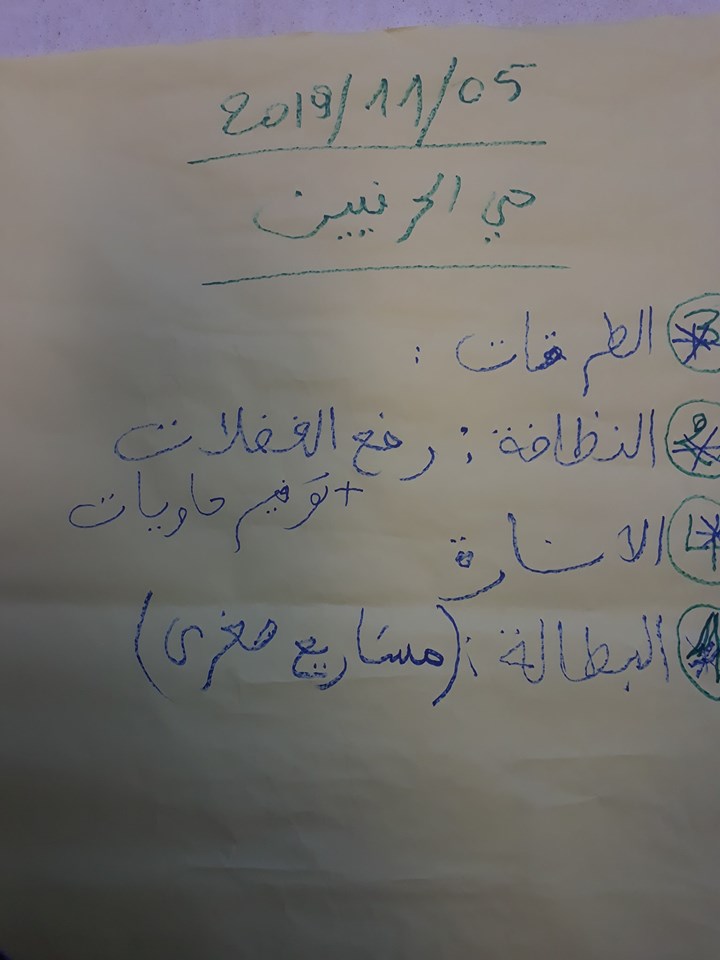 2019/11/05
حي الحرفيين
3 الطرقات :
2 النظافة : رفع الفضلات
+ توفير حاويات
4 الانارة
1 البطالة : (مشاريع صغرى)